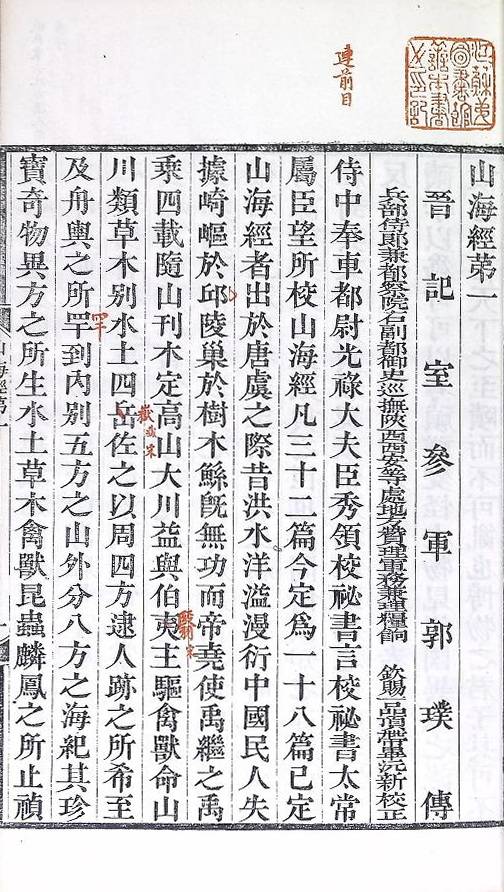 連前目
山海經第一
晋記室參軍郭璞傳
兵部侍郎兼都察院右副都御史巡撫陝西西安等處地方贊理軍務兼理糧餉 欽賜一品頂帶畢沅新校正
侍中奉車都尉光祿大夫臣秀領校祕書言校祕書太常
屬臣望所校山海經凡三十二篇今定爲一十八篇已定
山海經者出於唐虞之際昔洪水洋溢漫衍中國民人失
據崎嶇於邱陵巢於樹木鯀旣無功而帝堯使禹繼之禹
乘四載隨山刊木定高山大川益與伯夷主驅禽獸命山
川類草木别水土四岳佐之以周四方逮人跡之所希至
及舟輿之所罕到內别五方之山外分八方之海紀其珍
寶奇物異方之所生水土草木禽獸昆蟲麟鳳之所止禎
山海經第一